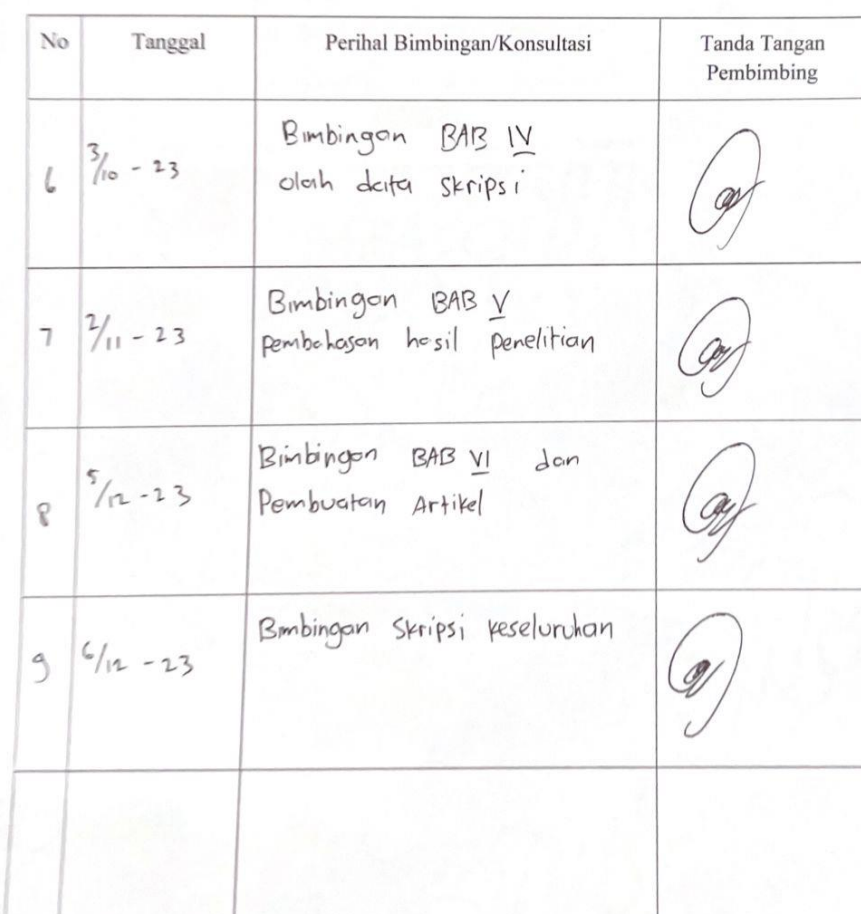 No Tanggal Perihal Bimbingan/Konsultasi Tanda Tangan
Pembimbing
6 3/10 - 23 Bimbingan BAB IV
olah data skripsi
7 2/11 - 23 Bimbingan BAB V
pembahasan hasil penelitian
8 5/12 - 23 Bimbingan BAB VI dan
Pembuatan Artikel
9 6/12 - 23 Bimbingan Skripsi keseluruhan